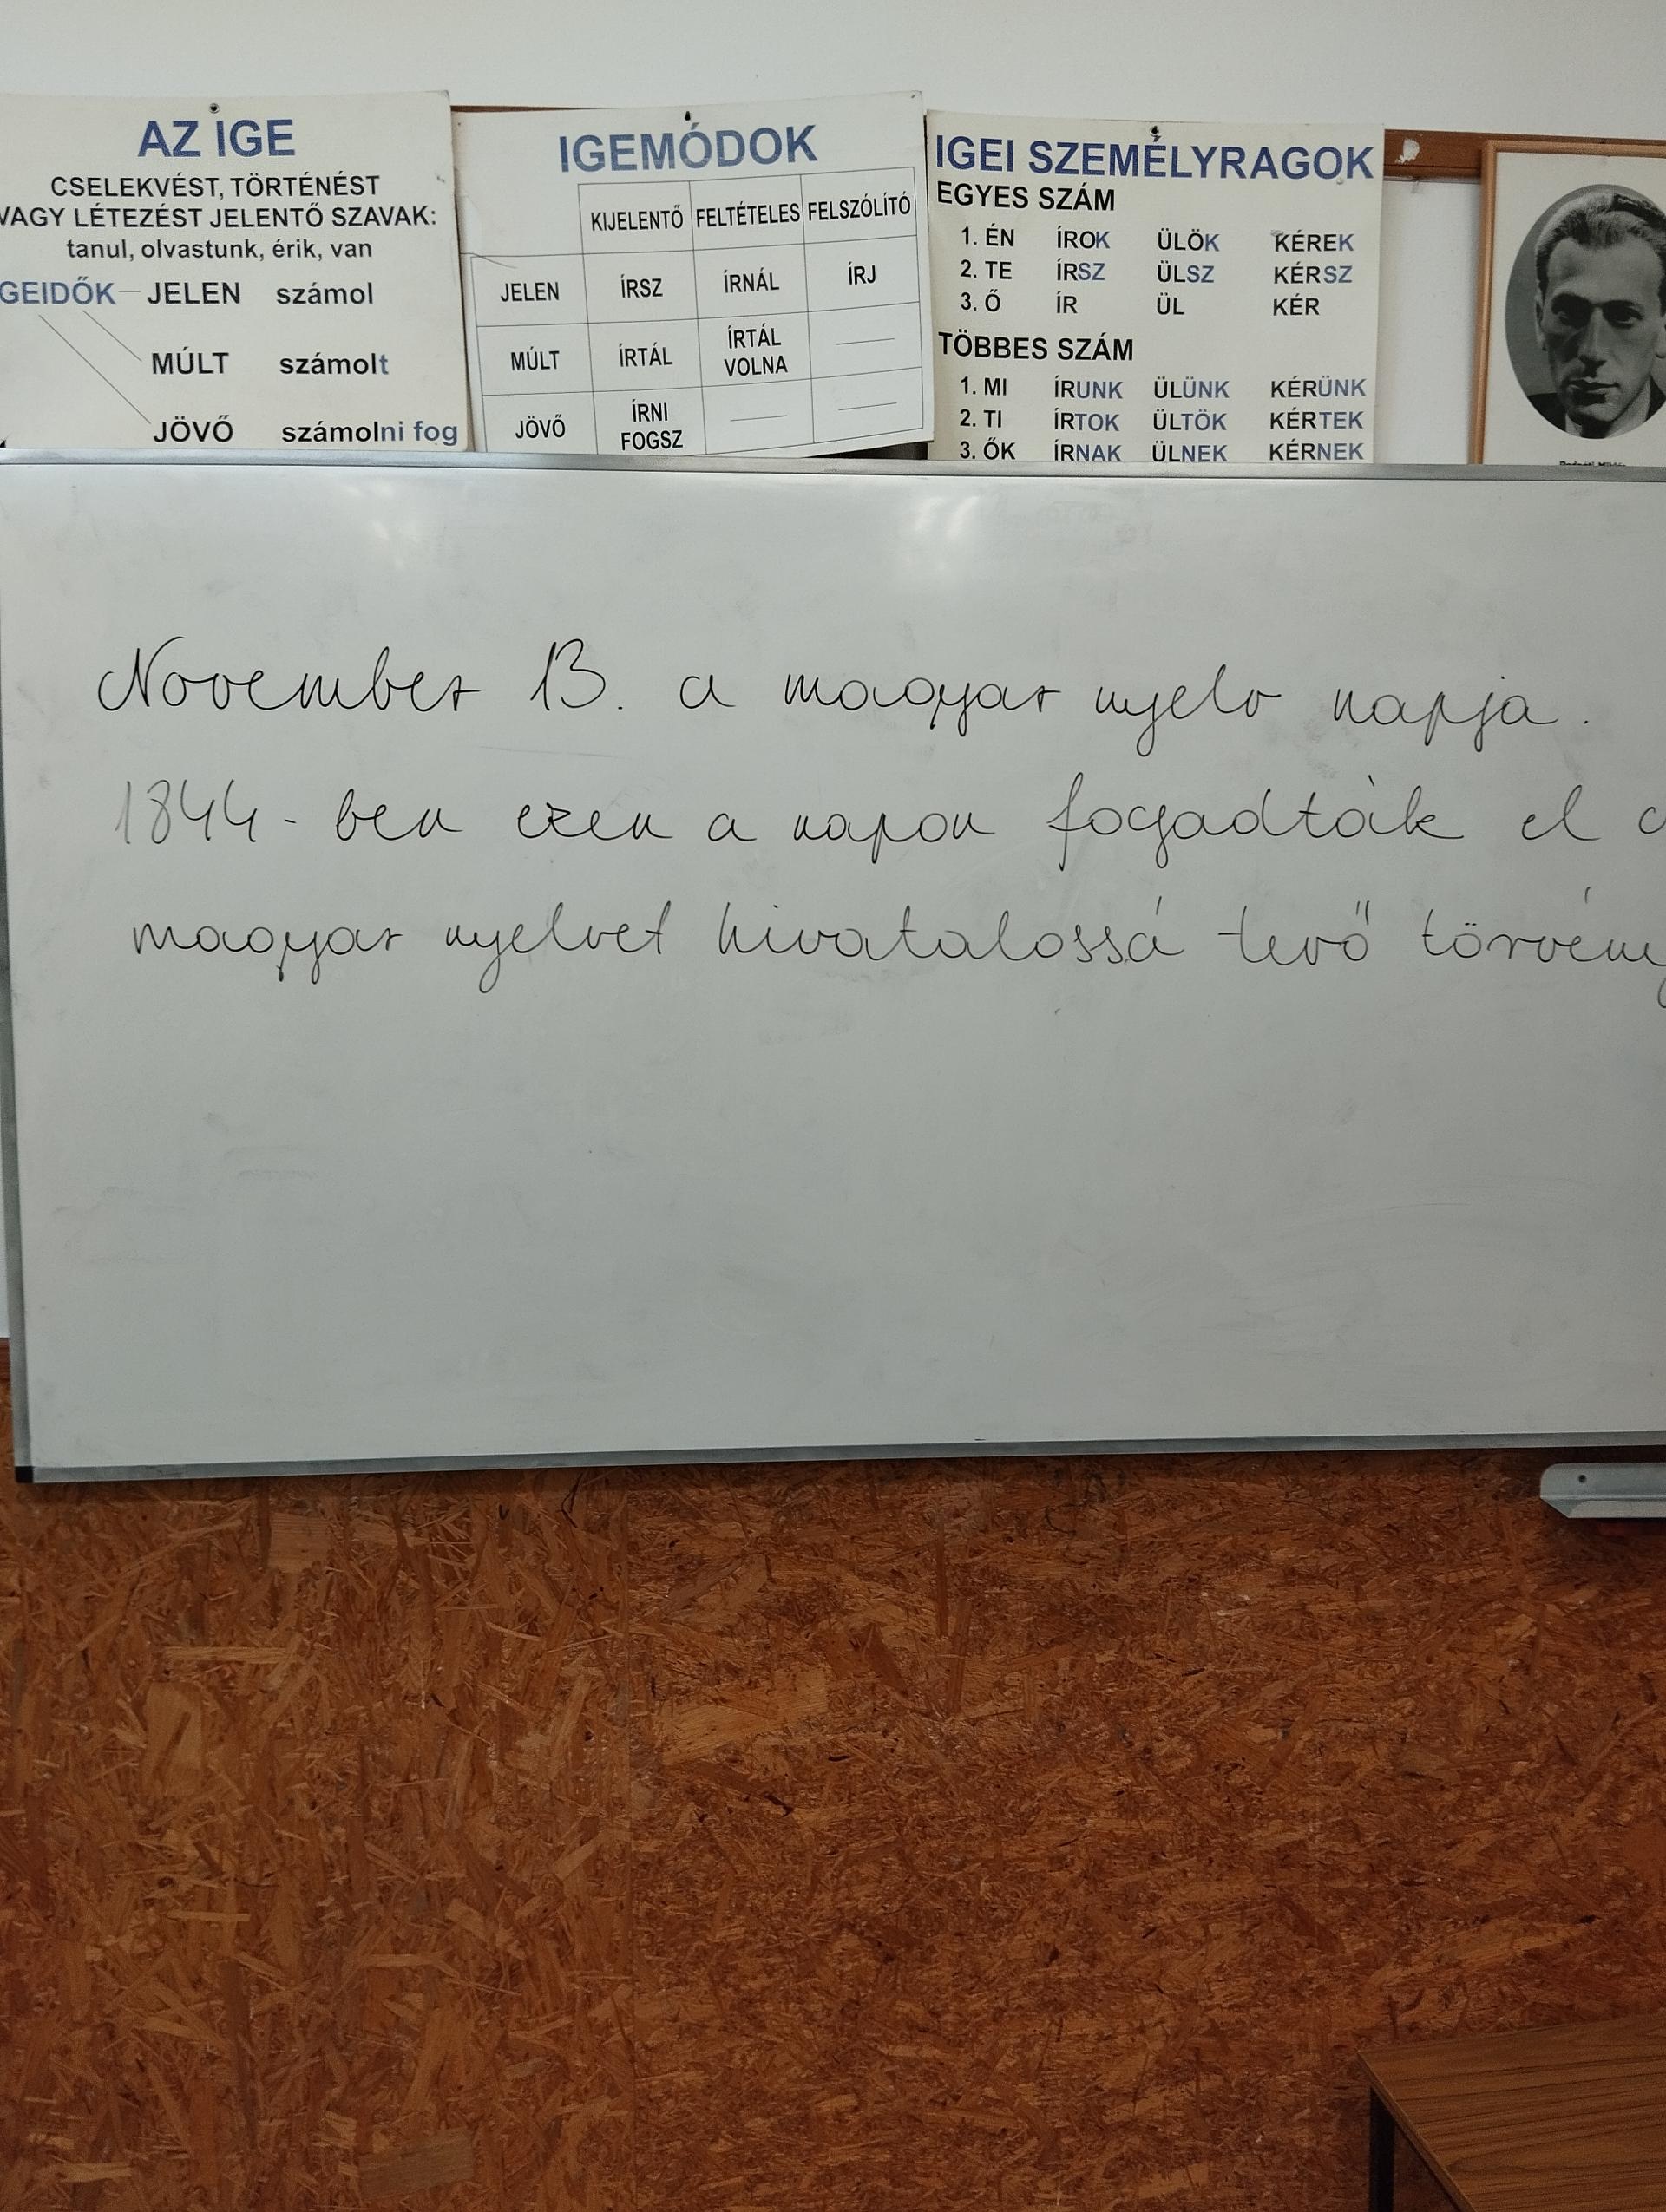 AZ IGE
CSELEKVÉST, TÖRTÉNÉST
VAGY LÉTEZÉST JELENTŐ SZAVAK:
tanul, olvastunk, érik, van
GEIDŐK JELEN számol
MÚLT számolt
JÖVŐ számolni fog
IGEMÓDOK
KIJELENTŐ FELTÉTELES FELSZÓLÍTÓ
JELEN ÍRSZ ÍRNÁL ÍRJ
MÚLT ÍRTÁL ÍRTÁL VOLNA
JÖVŐ ÍRNI FOGSZ
IGEI SZEMÉLYRAGOK
EGYES SZÁM
1. ÉN ÍROK ÜLÖK KÉREK
2. TE ÍRSZ ÜLSZ KÉRSZ
3. Ő ÍR ÜL KÉR
TÖBBES SZÁM
1. MI ÍRUNK ÜLÜNK KÉRÜNK
2. TI ÍRTOK ÜLTÖK KÉRTEK
3. ŐK ÍRNAK ÜLNEK KÉRNEK
November 13. a magyar nyelv napja.
1844-ben ezen a napon fogadták el a
magyar nyelvet hivatalossá tevő törvény